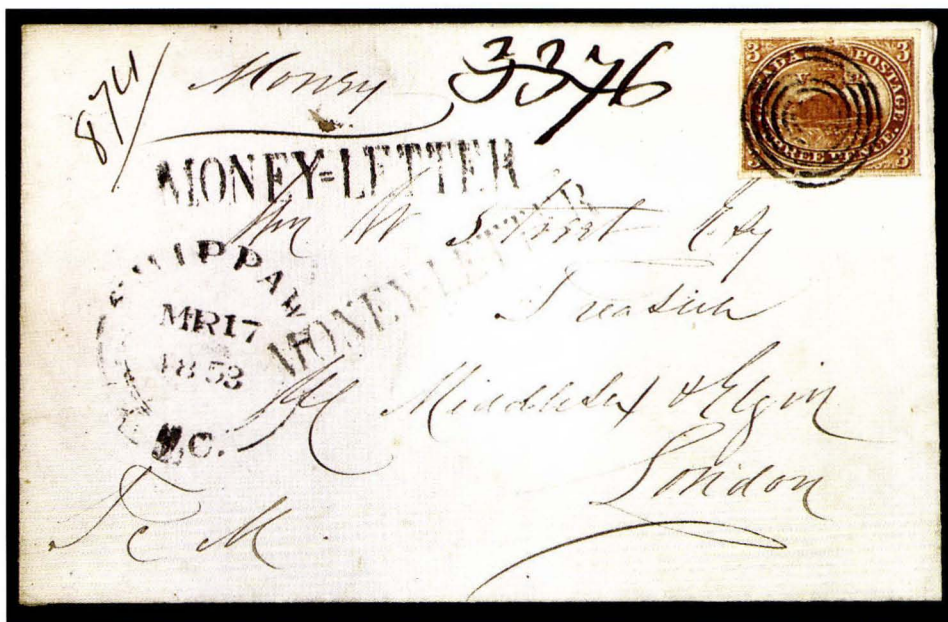 874/ Money 3376
3 CANADA POSTAGE. 3
3 THREE PENCE. 3
MONEY=LETTER
Wm W Street Esq
MONEY-LETTER
CHIPPAWA
MR 17
1853
U.C.
Treasurer
Middlesex & Elgin
London